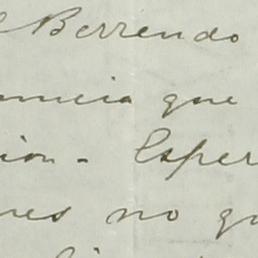 Berrendo
uncia que
ion - Esper
nes no qu